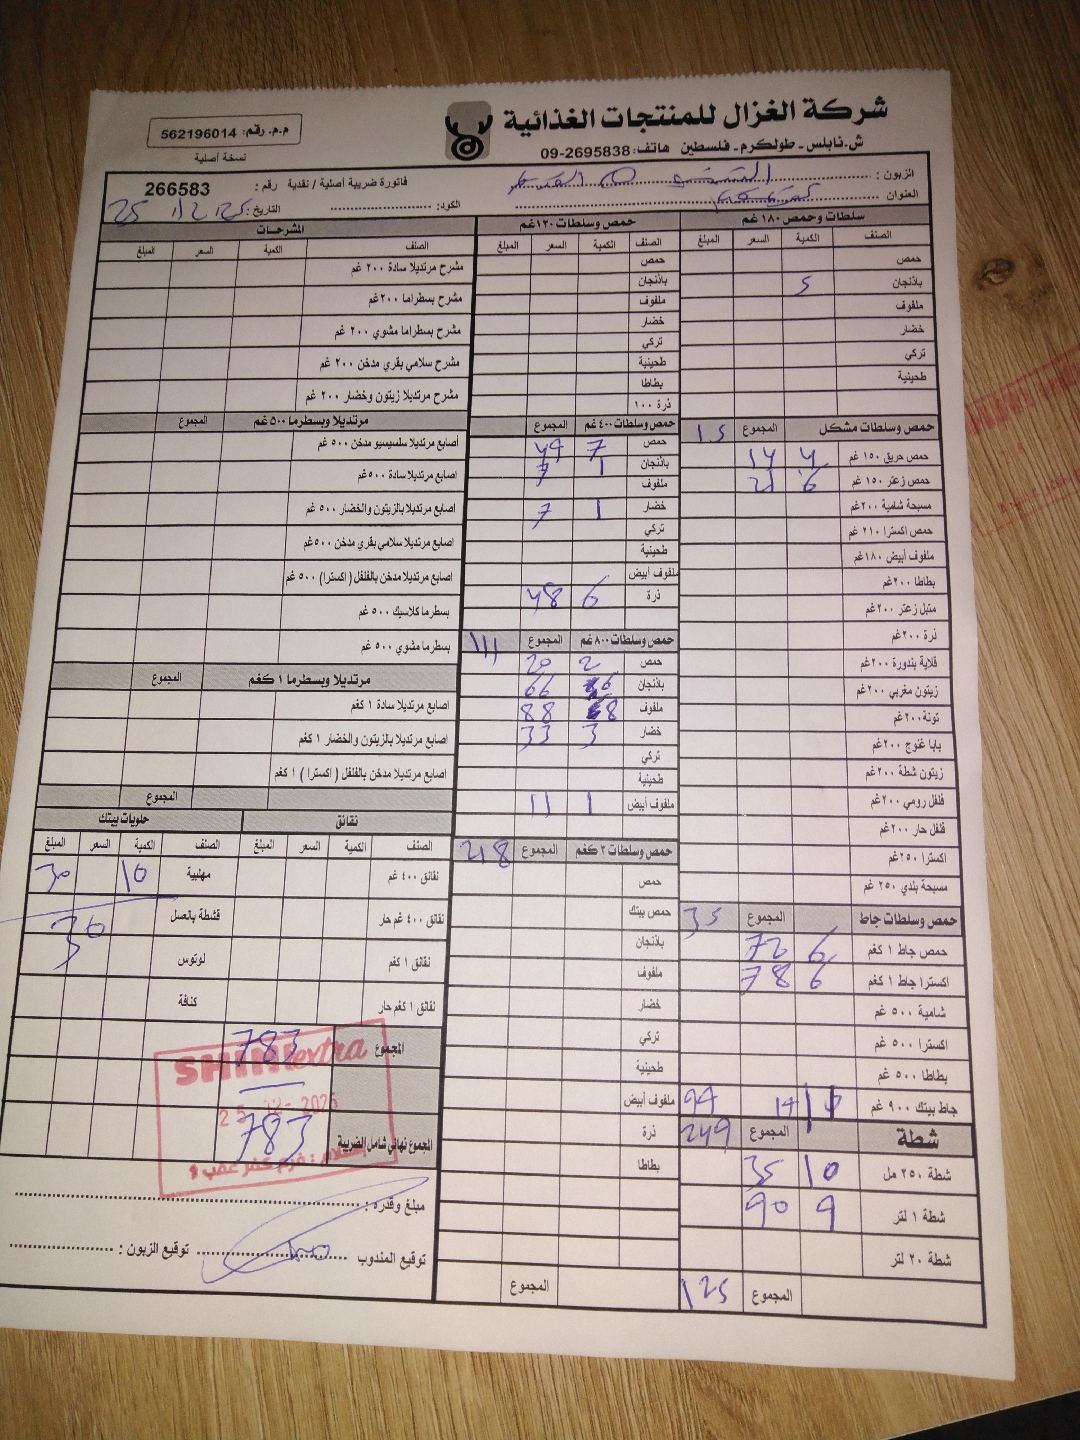 شركة الغزال للمنتجات الغذائية
ش.نابلس - طولكرم - فلسطين هاتف: 09-2695838
م.م. رقم: 562196014
نسخة أصلية
الزبون :
العنوان
فاتورة ضريبية أصلية / نقدية رقم : 266583
الكود: التاريخ: 25 12 25
سلطات وحمص ١٨٠ غم
الصنف الكمية السعر المبلغ
حمص
باذنجان 5
ملفوف
خضار
تركي
طحينية
حمص وسلطات مشكل المجموع
حمص حريق ١٥٠ غم 4 14
حمص زعتر ١٥٠ غم 6 21
مسبحة شامية ٢٠٠غم
حمص اكسترا ٢١٠ غم
ملفوف أبيض ١٨٠غم
بطاطا ٢٠٠غم
متبل زعتر ٢٠٠غم
ذرة ٢٠٠غم
قلاية بندورة ٢٠٠غم
زيتون مغربي ٢٠٠غم
تونة ٢٠٠غم
بابا غنوج ٢٠٠غم
زيتون شطة ٢٠٠غم
فلفل رومي ٢٠٠غم
فلفل حار ٢٠٠غم
اكسترا ٢٥٠غم
مسبحة بلدي ٢٥٠ غم
حمص وسلطات جاط المجموع 35
حمص جاط ١ كغم 6 72
اكسترا جاط ١ كغم 6 78
شامية ٥٠٠ غم
اكسترا ٥٠٠ غم
بطاطا ٥٠٠ غم
جاط بيتك ٩٠٠ غم 99
شطة المجموع 249
شطة ٢٥٠ مل 10 35
شطة ١ لتر 9 90
شطة ٢٠ لتر
المجموع 125
حمص وسلطات ١٢٠غم
الصنف الكمية السعر المبلغ
حمص
باذنجان
ملفوف
خضار
تركي
طحينية
بطاطا
ذرة ١٠٠
حمص وسلطات ٤٠٠غم المجموع
حمص 7 49
باذنجان 1 7
ملفوف
خضار 1 7
تركي
طحينية
ملفوف أبيض
ذرة 6 48
حمص وسلطات ٨٠٠غم المجموع 111
حمص 2 20
باذنجان 6 66
ملفوف 8 88
خضار 3 33
تركي
طحينية
ملفوف أبيض 1 11
حمص وسلطات ٢ كغم المجموع 218
حمص
حمص بيتك
باذنجان
ملفوف
خضار
تركي
طحينية
ملفوف أبيض
ذرة
بطاطا
المجموع
المشرحات
الصنف الكمية السعر المبلغ
مشرح مرتديلا سادة ٢٠٠ غم
مشرح بسطراما ٢٠٠غم
مشرح بسطراما مشوي ٢٠٠ غم
مشرح سلامي بقري مدخن ٢٠٠ غم
مشرح مرتديلا زيتون وخضار ٢٠٠ غم
مرتديلا وبسطرما ٥٠٠ غم المجموع
أصابع مرتديلا سلسيسيو مدخن ٥٠٠ غم
اصابع مرتديلا سادة ٥٠٠غم
اصابع مرتديلا بالزيتون والخضار ٥٠٠ غم
اصابع مرتديلا سلامي بقري مدخن ٥٠٠غم
اصابع مرتديلا مدخن بالفلفل ( اكسترا) ٥٠٠ غم
بسطرما كلاسيك ٥٠٠ غم
بسطرما مشوي ٥٠٠ غم
مرتديلا وبسطرما ١ كغم المجموع
اصابع مرتديلا سادة ١ كغم
اصابع مرتديلا بالزيتون والخضار ١ كغم
اصابع مرتديلا مدخن بالفلفل ( اكسترا ) ١ كغم
المجموع
نقانق
الصنف الكمية السعر المبلغ
نقانق ٤٠٠ غم
نقانق ٤٠٠ غم حار
نقانق ١ كغم
نقانق ١ كغم حار
حلويات بيتك
الصنف الكمية السعر المبلغ
مهلبية 10 30
قشطة بالعسل 30
لوتوس
كنافة
المجموع 783
المجموع نهائي شامل الضريبة 783
SHINI extra
25-12-2025
مبلغ وقدره :
توقيع المندوب توقيع الزبون :